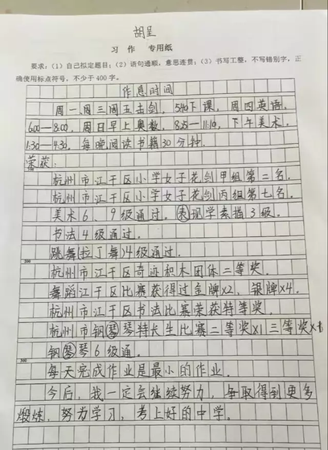 胡呈
习 作 专用纸
要求：（1）自己拟定题目；（2）语句通顺，意思连贯；（3）书写工整，不写错别字，正
确使用标点符号，不少于400字。
作息时间
周一、周三、周五击剑，5:40下课，周四英语，
6:00—8:00，周日早上奥数，8:25—11:10，下午美术，
1:30—4:30，每晚阅读书籍30分钟。
荣获：
杭州市江干区小学女子花剑甲组第二名，
杭州市江干区小学女子花剑丙组第七名，
美术6、9级通过，素描3级。
书法4级通过，
跳舞（拉丁舞）4级通过，
杭州市江干区奇迹积木团体二等奖，
舞蹈江干区比赛获得过金牌×2，银牌×4，
杭州市江干区书法比赛荣获特等奖，
杭州市钢琴特长生比赛二等奖×1三等奖×1
钢琴6级通。
每天完成作业是最小的作业。
今后，我一定会继续努力，争取得到更多
煅炼，努力学习，考上好的中学。